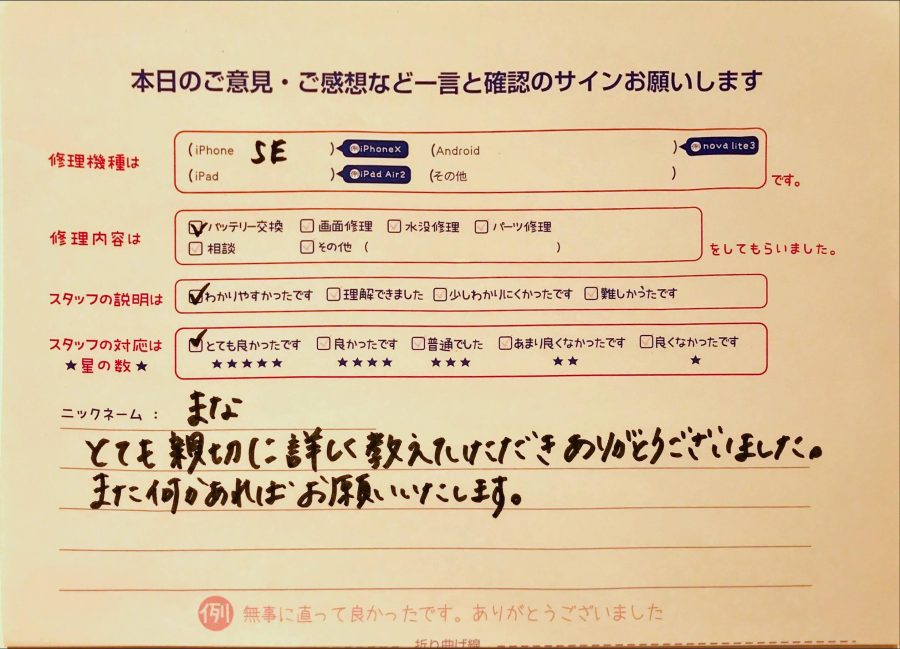 本日のご意見・ご感想など一言と確認のサインお願いします
修理機種は (iPhone SE ) 例iPhoneX (Android ) 例nova lite3
(iPad ) 例iPad Air2 (その他 ) です。
修理内容は バッテリー交換 画面修理 水没修理 パーツ修理
相談 その他 ( ) をしてもらいました。
スタッフの説明は わかりやすかったです 理解できました 少しわかりにくかったです 難しかったです
スタッフの対応は とても良かったです 良かったです 普通でした あまり良くなかったです 良くなかったです
★星の数★ ★★★★★ ★★★★ ★★★ ★★ ★
ニックネーム： まな
とても親切に詳しく教えていただきありがとうございました。
また何かあればお願いいたします。
例 無事に直って良かったです。ありがとうございました
折り曲げ線